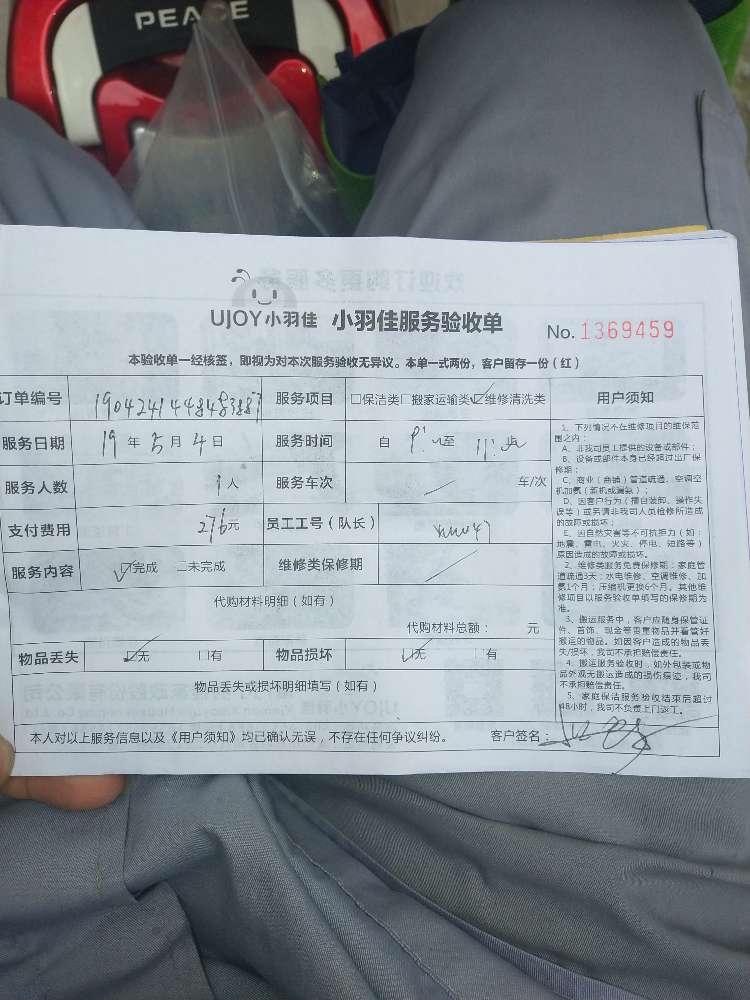 PEACE
UJOY小羽佳 小羽佳服务验收单 No. 1369459
本验收单一经核签，即视为对本次服务验收无异议。本单一式两份，客户留存一份（红）
订单编号 服务项目 □保洁类□搬家运输类☑维修清洗类 用户须知
服务日期 19年5月4日 服务时间 自 至
服务人数 1人 服务车次 车/次
支付费用 276元 员工工号（队长）
服务内容 ☑完成 □未完成 维修类保修期
代购材料明细（如有）
代购材料总额： 元
物品丢失 ☑无 □有 物品损坏 ☑无 □有
物品丢失或损坏明细填写（如有）
1、下列情况不在维修项目的维保范
围之内：
A、非我司员工提供的设备或部件；
B、设备或部件本身已经超过出厂保
修期；
C、商业（商铺）管道疏通、空调空
机加氨（新机或漏氨）；
D、因客户行为（擅自装卸、操作失
误等）或另请非我司人员检修所造成
的故障或损坏；
E、因自然灾害等不可抗拒力（如：
地震、雷电、火灾、停电、短路等）
原因造成的故障或损坏。
2、维修类服务免费保修期：家庭管
道疏通3天；水电维修、空调维修、加
氨1个月；压缩机更换6个月。其他维
修项目以服务验收单填写的保修期为
准。
3、搬运服务中，客户应随身保管证
件、首饰、现金等贵重物品并看管好
搬运的物品。如因客户造成的物品丢
失/损坏，我司不承担赔偿责任。
4、搬运服务验收时，如外包装或物
品外观无搬运造成的损伤痕迹，我司
不承担赔偿责任。
5、家庭保洁服务验收结束后超过
48小时，我司不负责上门返工。
本人对以上服务信息以及《用户须知》均已确认无误，不存在任何争议纠纷。 客户签名：